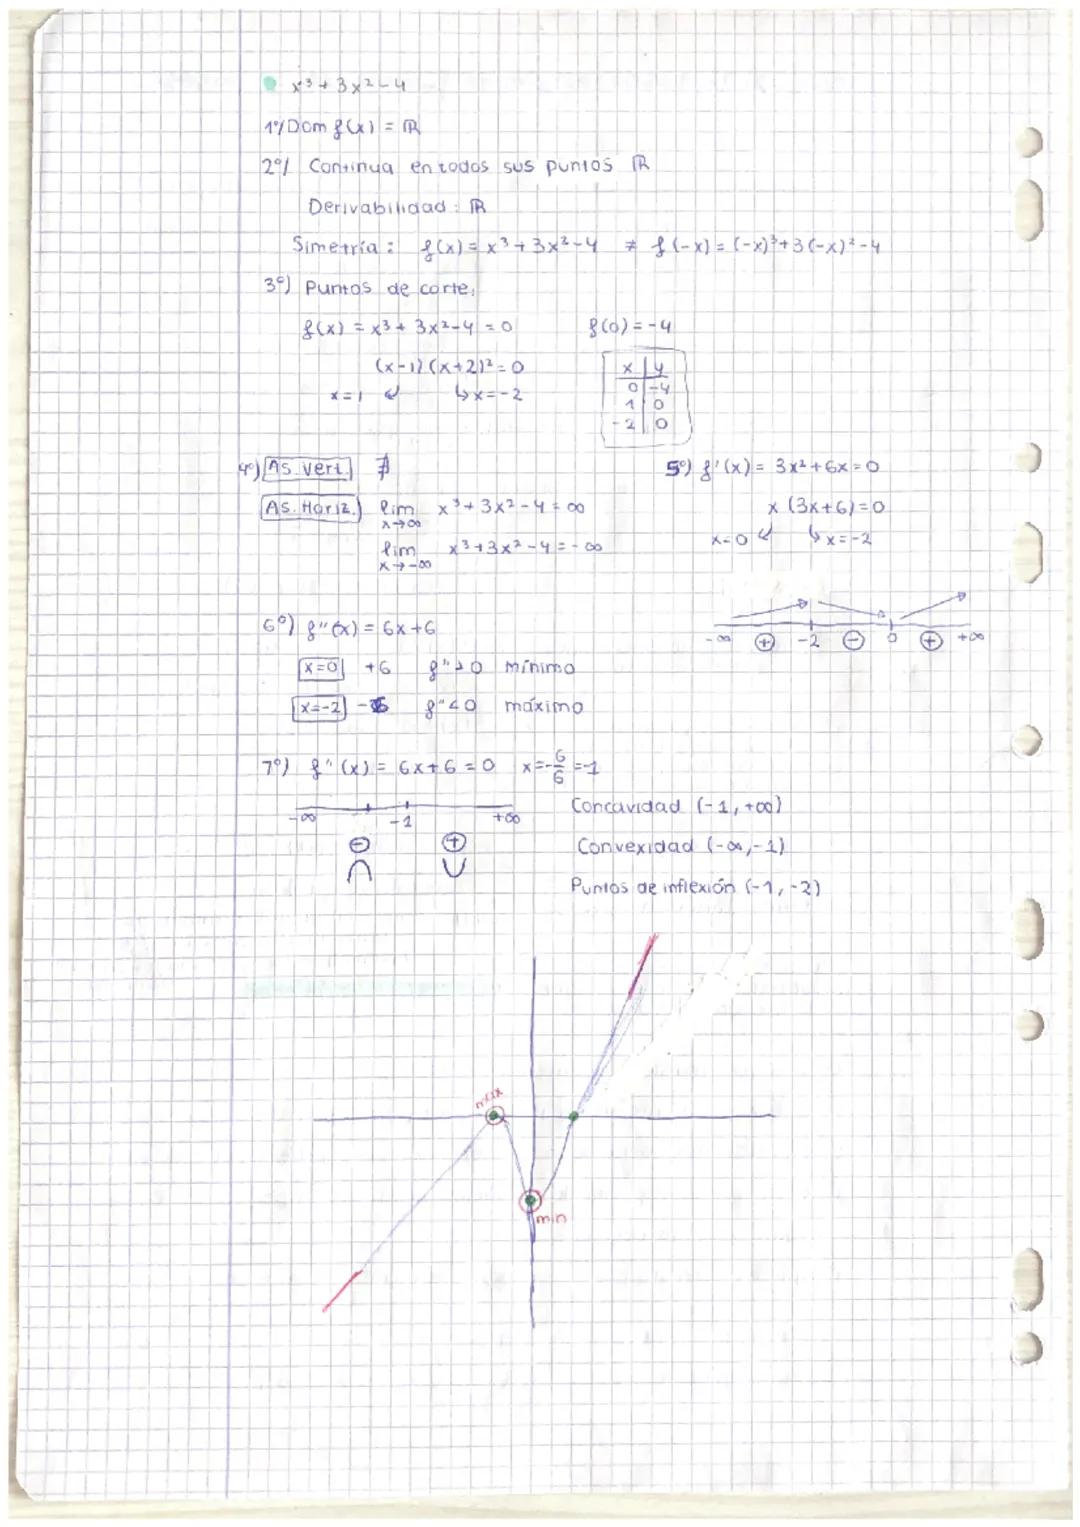 x³+3x²-4
1º/ Dom f(x) = ℝ
2º/ Continua en todos sus puntos ℝ
Derivabilidad: ℝ
Simetría: f(x) = x³+3x²-4 ≠ f(-x) = (-x)³+3(-x)²-4
3º) Puntos de corte:
f(x) = x³+3x²-4 = 0 f(0) = -4
(x-1)(x+2)² = 0
x=1 ↙ ↳ x=-2
x | y
0 | -4
1 | 0
-2 | 0
4º) As. Vert. ∄
As. Horiz. lim x→∞ x³+3x²-4 = ∞
lim x→-∞ x³+3x²-4 = -∞
5º) f'(x) = 3x²+6x = 0
x (3x+6) = 0
x=0 ↙ ↳ x=-2
-∞ ⊕ -2 ⊖ 0 ⊕ +∞
6º) f''(x) = 6x+6
x=0 +6 f''>0 mínimo
x=-2 -6 f''<0 máximo
7º) f''(x) = 6x+6 = 0 x=-6/6=-1
-∞ -1 +∞
⊖ ⊕
∩ ∪
Concavidad (-1, +∞)
Convexidad (-∞, -1)
Puntos de inflexión (-1, -2)
max
min